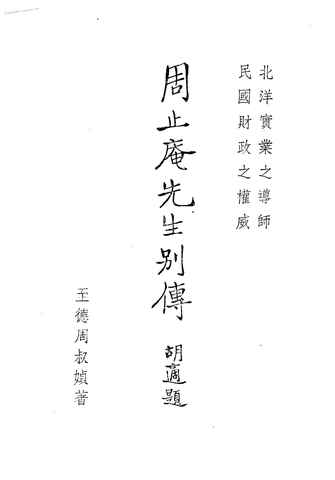 北洋實業之導師
民國財政之權威
周止庵先生別傳
胡適題
至德周叔媜著